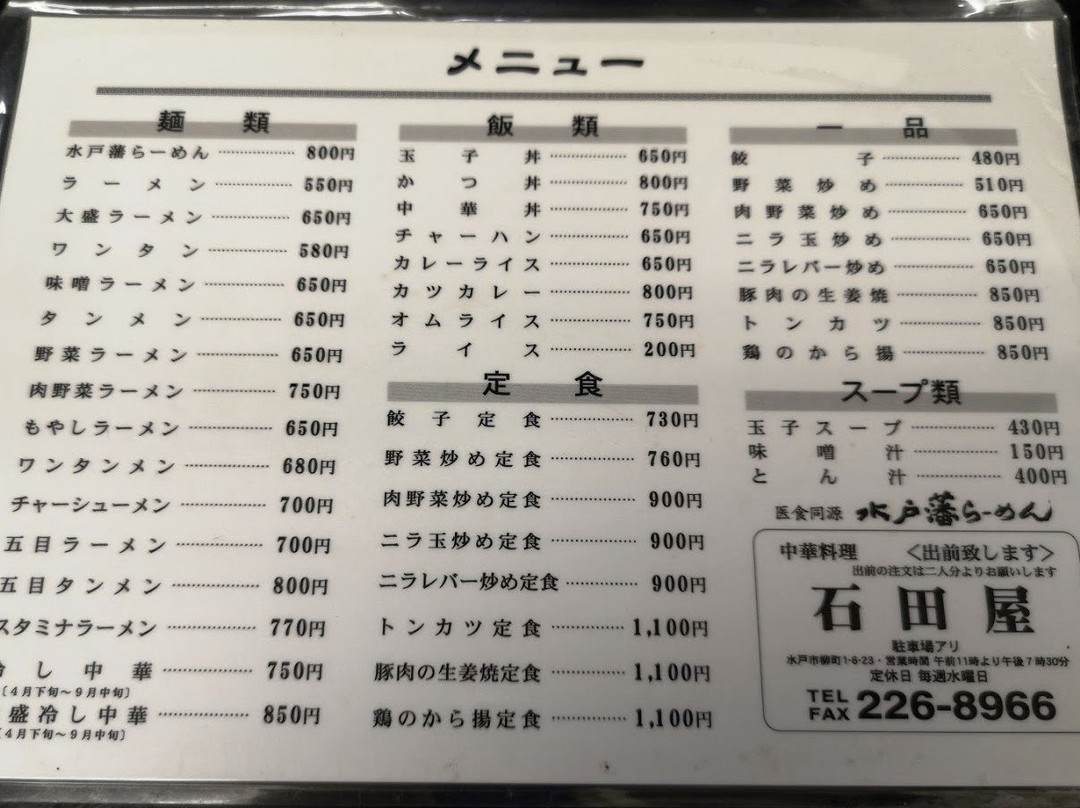 メニュー
麺類
水戸藩らーめん 800円
ラーメン 550円
大盛ラーメン 650円
ワンタン 580円
味噌ラーメン 650円
タンメン 650円
野菜ラーメン 650円
肉野菜ラーメン 750円
もやしラーメン 650円
ワンタンメン 680円
チャーシューメン 700円
五目ラーメン 700円
五目タンメン 800円
スタミナラーメン 770円
冷し中華 750円
〔4月下旬〜9月中旬〕
盛冷し中華 850円
〔4月下旬〜9月中旬〕
飯類
玉子丼 650円
かつ丼 800円
中華丼 750円
チャーハン 650円
カレーライス 650円
カツカレー 800円
オムライス 750円
ライス 200円
定食
餃子定食 730円
野菜炒め定食 760円
肉野菜炒め定食 900円
ニラ玉炒め定食 900円
ニラレバー炒め定食 900円
トンカツ定食 1,100円
豚肉の生姜焼定食 1,100円
鶏のから揚定食 1,100円
一品
餃子 480円
野菜炒め 510円
肉野菜炒め 650円
ニラ玉炒め 650円
ニラレバー炒め 650円
豚肉の生姜焼 850円
トンカツ 850円
鶏のから揚 850円
スープ類
玉子スープ 430円
味噌汁 150円
とん汁 400円
医食同源 水戸藩らーめん
中華料理 <出前致します>
出前の注文は二人分よりお願いします
石田屋
駐車場アリ
水戸市柳町1-6-23・営業時間 午前11時より午後7時30分
定休日 毎週水曜日
TEL FAX 226-8966